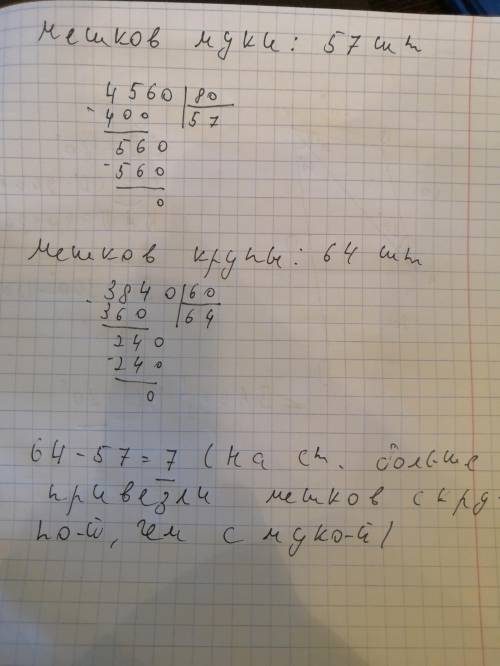 мешков муки: 57 шт
4560 80
- 400 57
560
- 560
0
мешков крупы: 64 шт
- 3840 60
360 64
240
- 240
0
64 - 57 = 7 ( На ст. больше
привезли мешков с кру-
по-й, чем с муко-й)